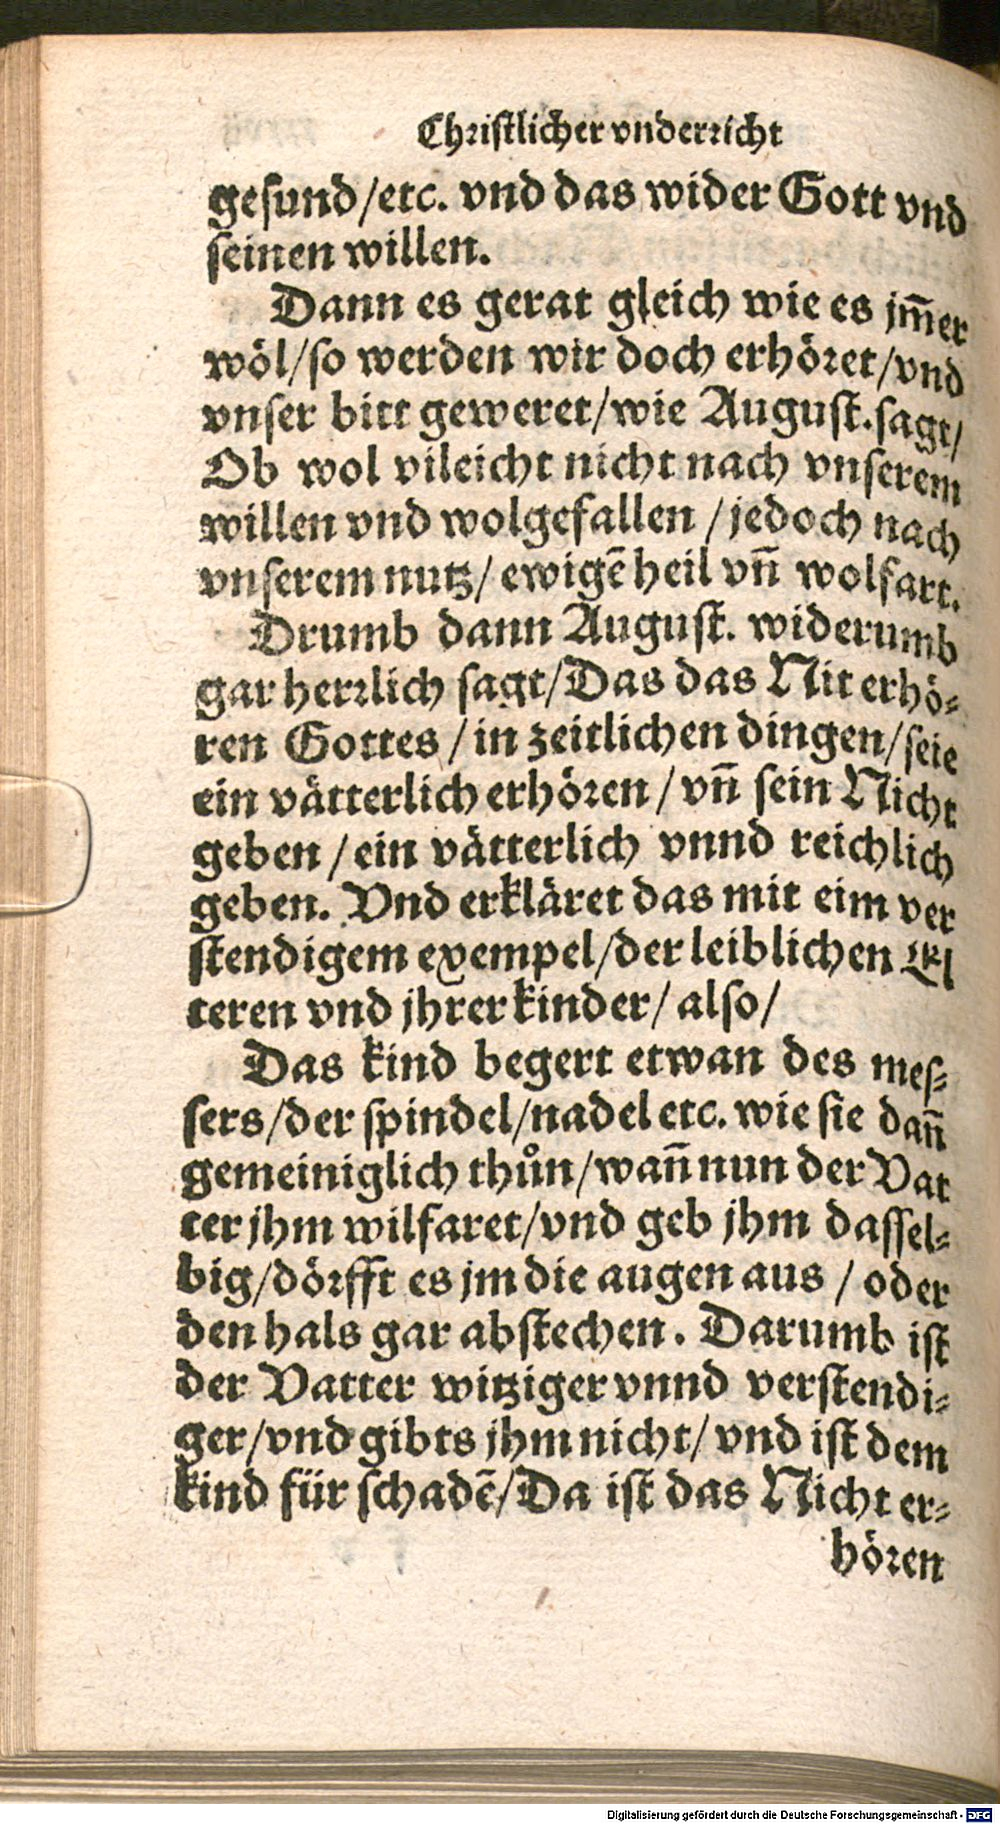 Christlicher vnderricht
gesund/etc. vnd das wider Gott vnd
seinen willen.
Dann es gerat gleich wie es jm̃er
wöl/so werden wir doch erhöret/vnd
vnser bitt geweret/wie August.sagt/
Ob wol vileicht nicht nach vnserem
willen vnd wolgefallen /jedoch nach
vnserem nutz/ ewigẽ heil vñ wolfart.
Drumb dann August. widerumb
gar herrlich sagt/Das das Nit erhö-
ren Gottes /in zeitlichen dingen/seie
ein vätterlich erhören / vñ sein Nicht
geben /ein vätterlich vnnd reichlich
geben. Vnd erkläret das mit eim ver
stendigem exempel/der leiblichen El
teren vnd jhrer kinder/ also/
Das kind begert etwan des mes-
sers/der spindel/nadel etc. wie sie dañ
gemeiniglich thůn/wañ nun der Vat
ter jhm wilfaret/vnd geb jhm dassel-
big/dörfft es jm die augen aus / oder
den hals gar abstechen. Darumb ist
der Vatter witziger vnnd verstendi-
ger/vnd gibts jhm nicht/ vnd ist dem
kind für schadẽ/Da ist das Nicht er-
hören
Digitalisierung gefördert durch die Deutsche Forschungsgemeinschaft - DFG